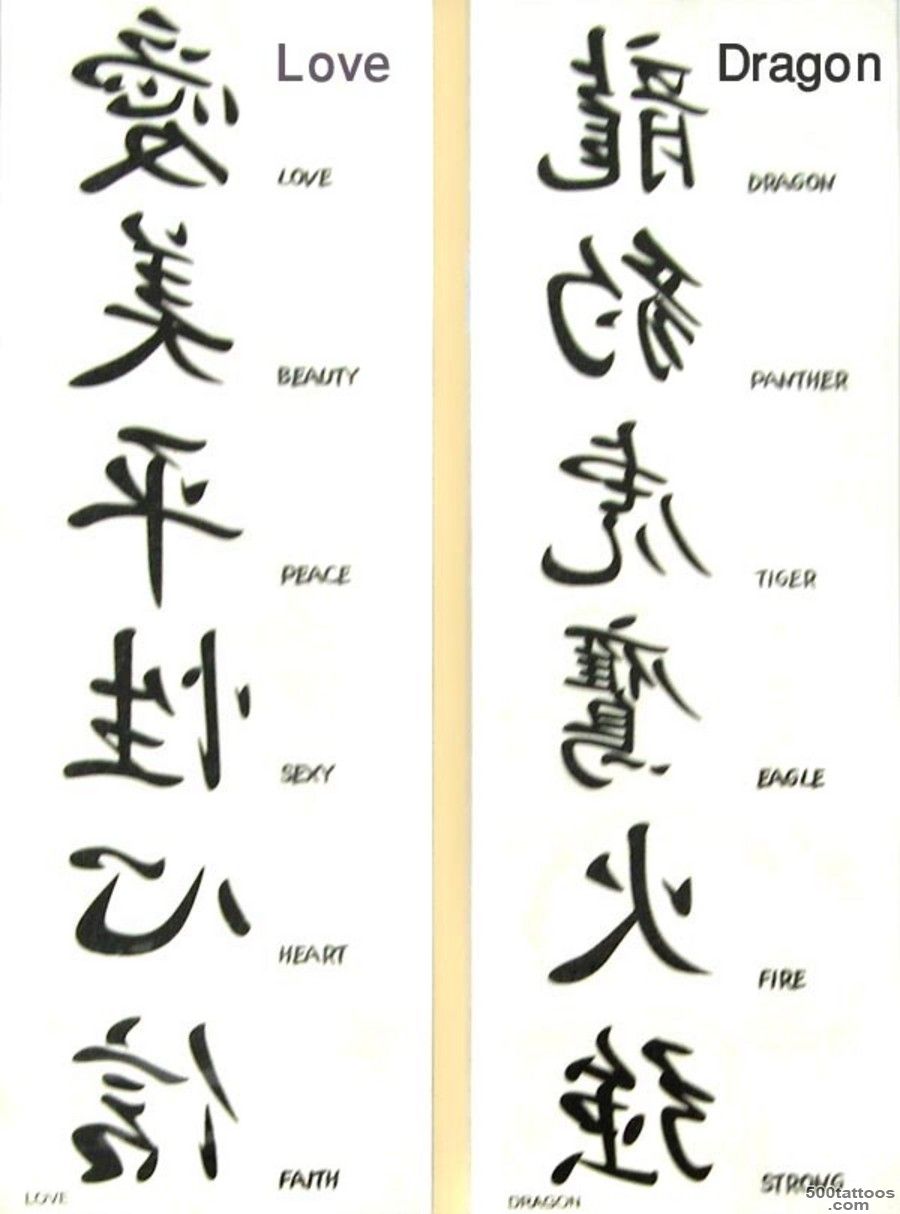 Love
愛
LOVE
美
BEAUTY
平
PEACE
性
SEXY
心
HEART
信
FAITH
LOVE
Dragon
龍
DRAGON
豹
PANTHER
虎
TIGER
鷹
EAGLE
火
FIRE
強
STRONG
DRAGON
500tattoos
.com